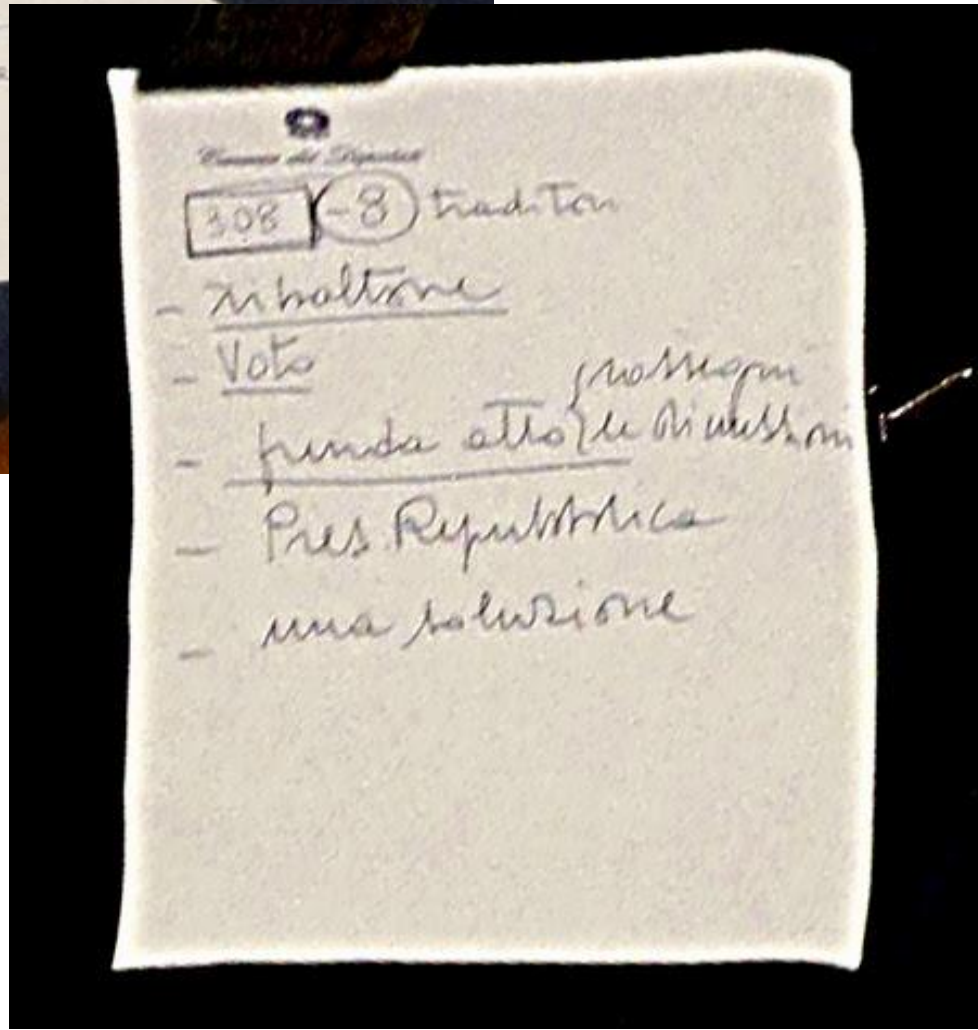 Camera dei Deputati
308 -8 traditori
- ribaltone
- Voto
- prenda atto { rassegni
le dimissioni
- Pres. Repubblica
- una soluzione